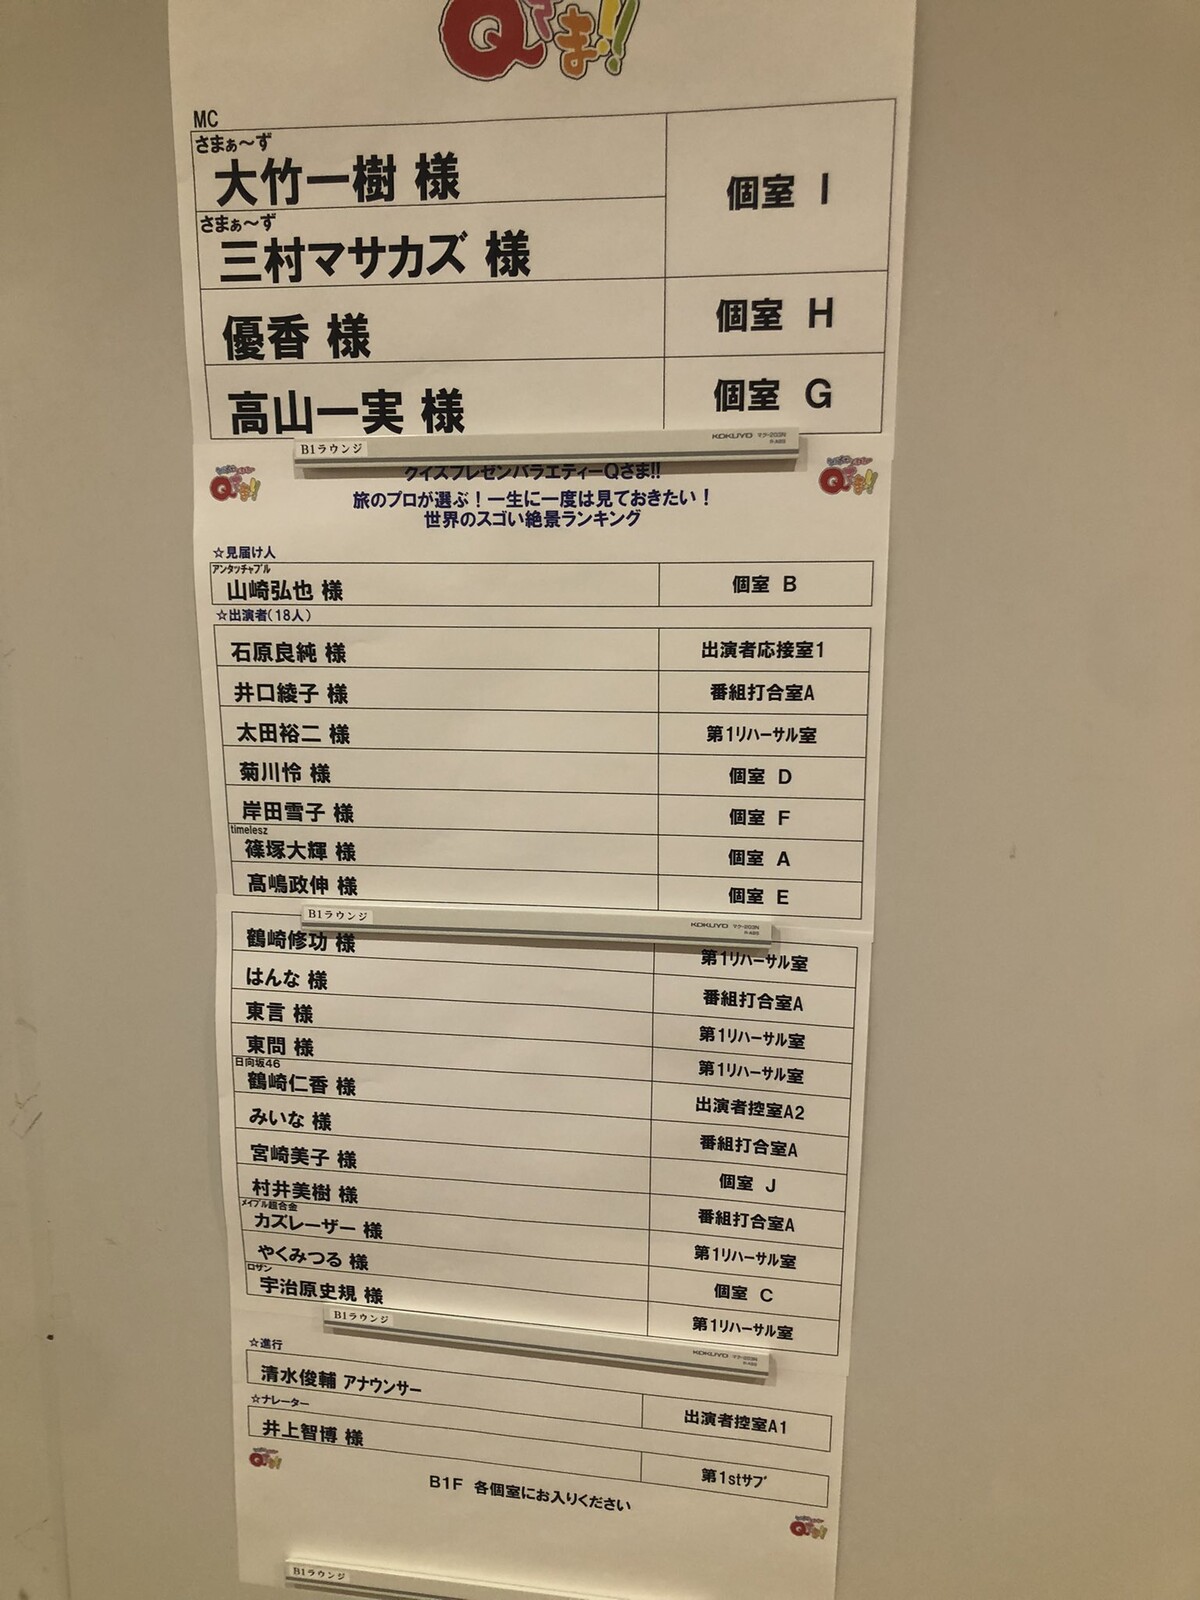 Qさま!!
MC
さまぁ～ず
大竹一樹 様
個室 I
さまぁ～ず
三村マサカズ 様
優香 様
個室 H
高山一実 様
個室 G
B1ラウンジ
KOKUYO マク-203N
Qさま!!
クイズプレゼンバラエティーQさま!!
Qさま!!
旅のプロが選ぶ！一生に一度は見ておきたい！
世界のスゴい絶景ランキング
☆見届け人
アンタッチャブル
山崎弘也 様
個室 B
☆出演者(18人)
石原良純 様
出演者応接室1
井口綾子 様
番組打合室A
太田裕二 様
第1リハーサル室
菊川怜 様
個室 D
岸田雪子 様
個室 F
timelesz
篠塚大輝 様
個室 A
髙嶋政伸 様
個室 E
B1ラウンジ
KOKUYO マク-203N
鶴崎修功 様
第1リハーサル室
はんな 様
番組打合室A
東言 様
第1リハーサル室
東問 様
第1リハーサル室
日向坂46
鶴崎仁香 様
出演者控室A2
みいな 様
番組打合室A
宮崎美子 様
個室 J
村井美樹 様
番組打合室A
メイプル超合金
カズレーザー 様
第1リハーサル室
やくみつる 様
個室 C
ロザン
宇治原史規 様
第1リハーサル室
B1ラウンジ
KOKUYO マク-203N
☆進行
清水俊輔 アナウンサー
出演者控室A1
☆ナレーター
井上智博 様
第1stサブ
Qさま!!
B1F 各個室にお入りください
Qさま!!
B1ラウンジ